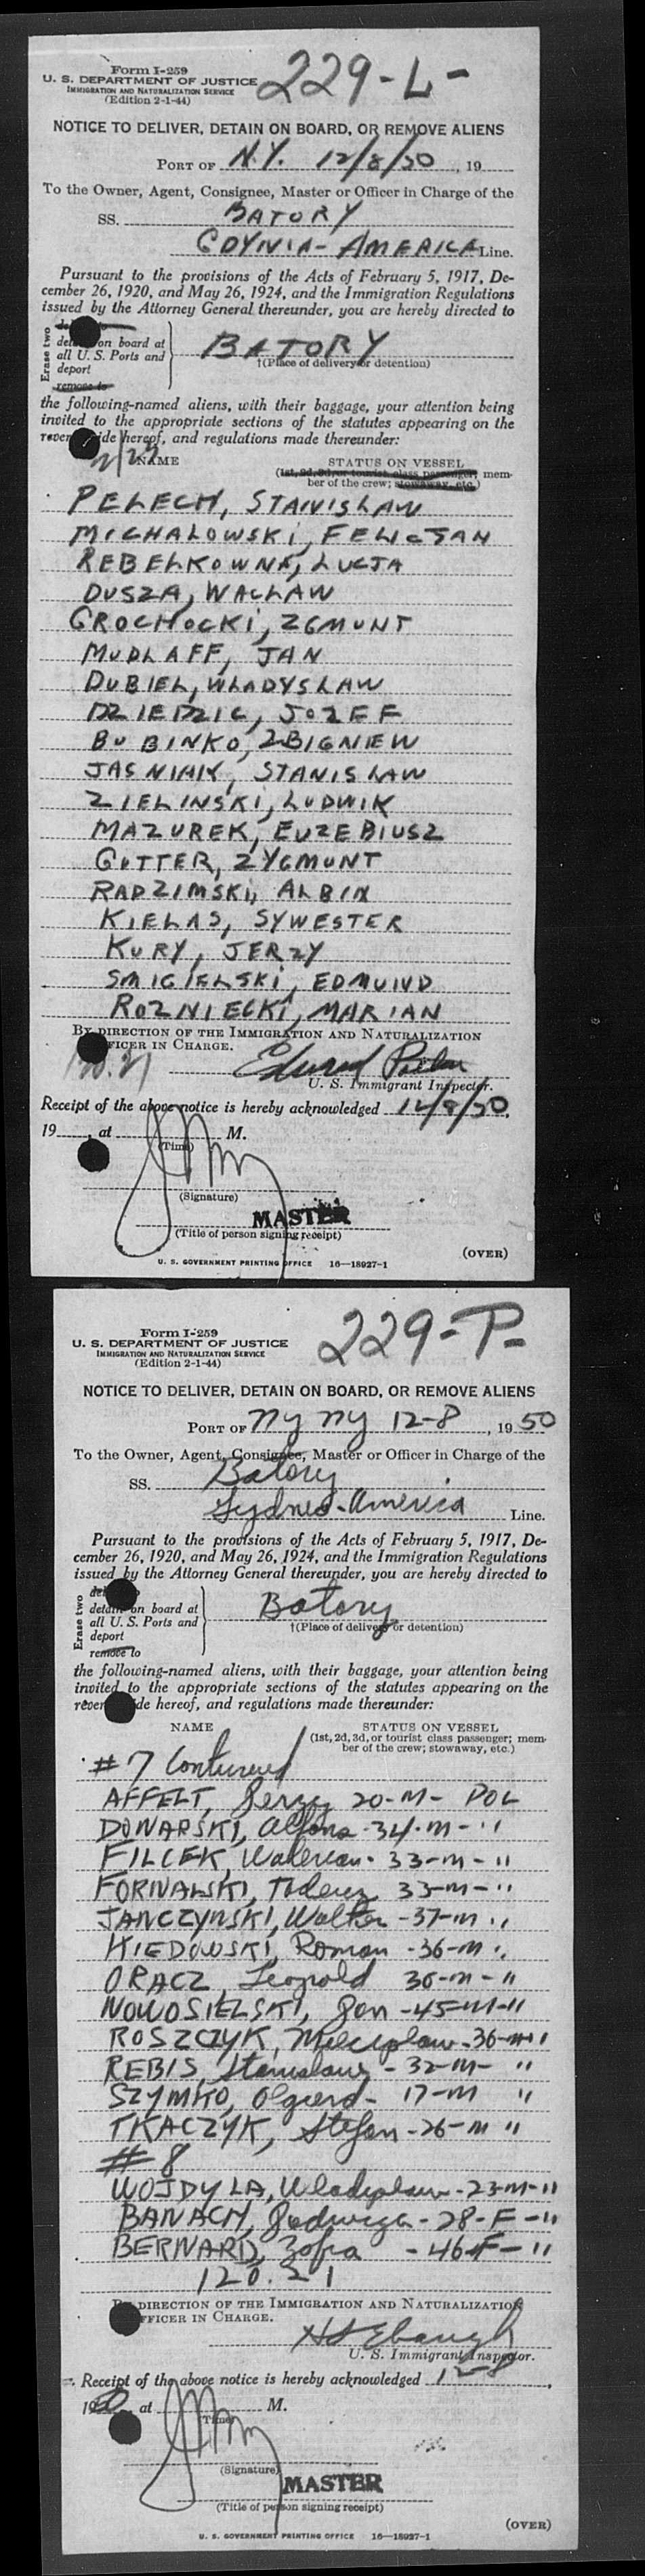 Form I-259
229-L-
U. S. DEPARTMENT OF JUSTICE
IMMIGRATION AND NATURALIZATION SERVICE
(Edition 2-1-44)
NOTICE TO DELIVER, DETAIN ON BOARD, OR REMOVE ALIENS
PORT OF N.Y. 12/8/50, 19
To the Owner, Agent, Consignee, Master or Officer in Charge of the
SS. BATORY
GDYNIA-AMERICA Line.
Pursuant to the provisions of the Acts of February 5, 1917, De-
cember 26, 1920, and May 26, 1924, and the Immigration Regulations
issued by the Attorney General thereunder, you are hereby directed to
Erase two
on board at
all U. S. Ports and
deport
remove to
BATORY
†(Place of delivery or detention)
the following-named aliens, with their baggage, your attention being
invited to the appropriate sections of the statutes appearing on the
hereof, and regulations made thereunder:
NAME STATUS ON VESSEL
(1st, 2d, 3d, or tourist class passenger; mem-
ber of the crew; stowaway, etc.)
PELECH, STANISLAW
MICHALOWSKI, FELICJAN
REBELKOWNA, LUCJA
DUSZA, WACLAW
GROCHOCKI, ZGMUNT
MUDLAFF, JAN
DUBIEL, WLADYSLAW
DZIEDZIC, JOZEF
BUBINKO, ZBIGNIEW
JASNIAK, STANISLAW
ZIELINSKI, LUDWIK
MAZUREK, EUZEBIUSZ
GUTTER, ZYGMUNT
RADZIMSKI, ALBIN
KIELAS, SYWESTER
KURY, JERZY
SMIGIELSKI, EDMUND
ROZNIECKI, MARIAN
BY DIRECTION OF THE IMMIGRATION AND NATURALIZATION
OFFICER IN CHARGE.
120.21
Edward
U. S. Immigrant Inspector.
Receipt of the above notice is hereby acknowledged 12/8/50,
19 , at M.
(Time)
(Signature)
MASTER
(Title of person signing receipt)
(OVER)
U. S. GOVERNMENT PRINTING OFFICE 16—18927-1
Form I-259
229-P-
U. S. DEPARTMENT OF JUSTICE
IMMIGRATION AND NATURALIZATION SERVICE
(Edition 2-1-44)
NOTICE TO DELIVER, DETAIN ON BOARD, OR REMOVE ALIENS
PORT OF NY NY 12-8, 1950
To the Owner, Agent, Consignee, Master or Officer in Charge of the
SS. Batory
America Line.
Pursuant to the provisions of the Acts of February 5, 1917, De-
cember 26, 1920, and May 26, 1924, and the Immigration Regulations
issued by the Attorney General thereunder, you are hereby directed to
Erase two
detain on board at
all U. S. Ports and
deport
remove to
Batory
†(Place of delivery or detention)
the following-named aliens, with their baggage, your attention being
invited to the appropriate sections of the statutes appearing on the
hereof, and regulations made thereunder:
NAME STATUS ON VESSEL
(1st, 2d, 3d, or tourist class passenger; mem-
ber of the crew; stowaway, etc.)
#7 Continued
AFFELT, Jerzy 20-M- POL
DONARSKI, Alfons-34-M-"
FILCEK, Walerian-33-M-"
FORNALSKI, Tadeusz 33-M-"
JANCZYNSKI, Walter-37-M "
KIEDOWSKI, Roman-36-M "
ORACZ, Leopold 36-M-"
NOWOSIELSKI, Jan-45-M-"
ROSZCZYK, Mieczyslaw-36-M-"
REBIS, Stanislaw-32-M-"
SZYMKO, Olgierd-17-M "
TKACZYK, Stefan-26-M "
#8
WOJDYLA, Wladyslaw-23-M-"
BANACH, Jadwiga-28-F-"
BERNARD, Zofia -46-F-"
120.21
BY DIRECTION OF THE IMMIGRATION AND NATURALIZATION
OFFICER IN CHARGE.
U. S. Immigrant Inspector.
Receipt of the above notice is hereby acknowledged 12-8,
1950 at M.
(Time)
(Signature)
MASTER
(Title of person signing receipt)
(OVER)
U. S. GOVERNMENT PRINTING OFFICE 16—18927-1